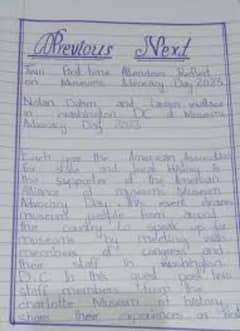 Previous Next
Two First-time Attendees Reflect
on Museums Advocacy Day 2023
Nolan Dahm and Lauren Wallace
in Washington DC of Museums
Advocacy Day 2023
Each year the American Association
for state and local History is
the supporter of the American
Alliance of museums Museum
Advocacy Day. This event draws
museum people from around
the country to speak up for
museums by meeting with
members of congress and
their staff in Washington
D.C. In this guest post two
staff members from the
charlotte Museum of history
share their experiences as